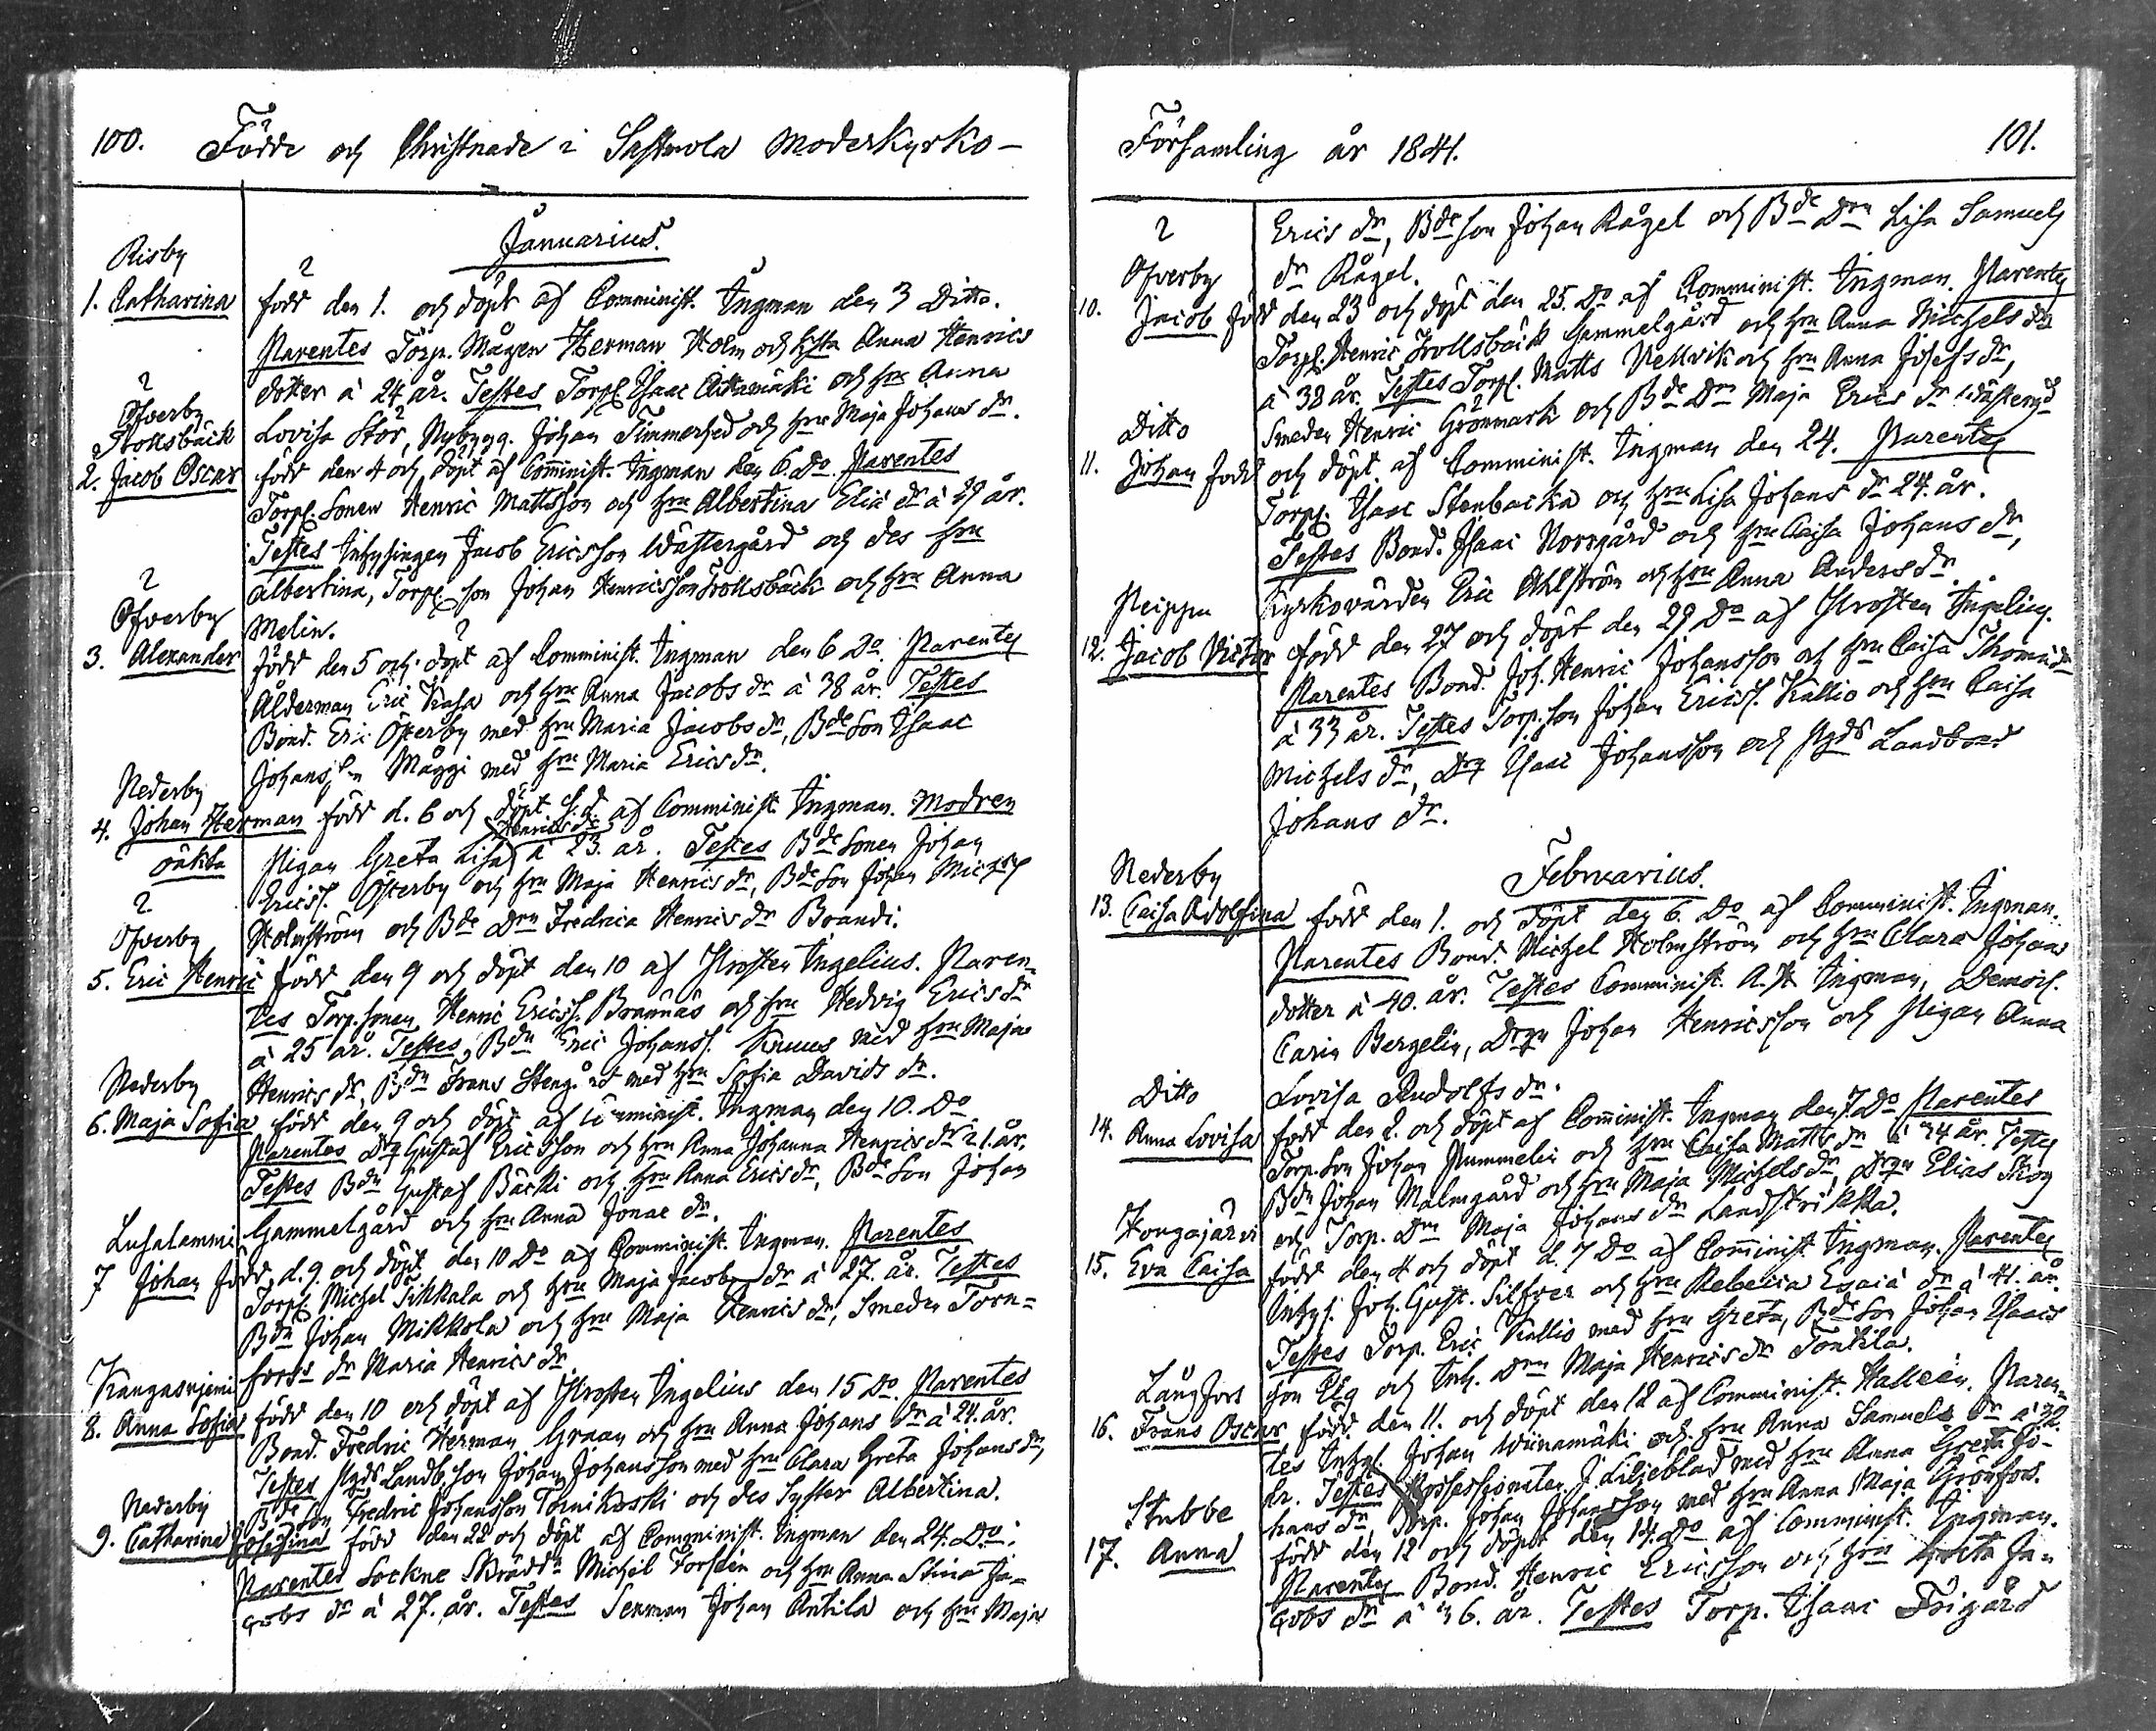 100. Födde och Christnade i Sastmola Moderkyrko-
Januarius.
Risby
1. Catharina född den 1. och döpt af Comminist. Ingman den 3 Ditto.
Parentes Torp. Mågen Herman Holm och Anna Henrics
dotter à 24 år. Testes Torpf Isaac och hru Anna
Öfverby
Trollsbäck Lovisa Stor, Nybygg. Johan Timmerhed och hru Maja Johans dr.
2. Jacob Oscar född den 4 och döpt af Comminist. Ingman den 6. Do Parentes
Torpf. Sonen Henric Mattsson och hru Albertina Eric dr à 29 år.
Testes Inhysingen Jacob Ericsson Wästergård och des hru
Albertina, Torpf son Johan Henricsson Trollsbäck och hru Anna
Öfverby Melin.
3. Alexander född den 5 och döpt af Comminist. Ingman den 6 Do. Parentes
Ålderman Eric Kasa och hru Anna Jacobs dr à 38 år. Testes
Bond. Eric Österby med hru Maria Jacobs dr, Bde Son Isaac
Johansson Mäggi med hru Maria Erics dr.
Nederby
4. Johan Herman född d. 6 och döpt af Comminist. Ingman. Modren
Henrics dr
oäkta Pigan Greta Lisa à 23. år. Testes Bde Sonen Johan
Ericss. Österby och hru Maja Henrics dr, Bde Son Johan
Öfverby Holmström och Bde Drn Fredrica Henrics dr Brandi.
5. Eric Henric född den 9 och döpt den 10 af Prosten Ingelius. Paren-
tes Torp. sonen Henric Ericss. Brännäs och hru Hedvig Erics dr
à 25 år. Testes, Bdn Eric Johanss. Knuus med hru Maja
Nederby Henrics dr, Bdn Frans Stengård med hru Sofia Davids dr.
6. Maja Sofia född den 9 och döpt af Comminist. Ingman den 10. Do
Parentes Drg Gustaf Ericsson och hru Anna Johanna Henrics dr 21. år.
Testes Bdn Gustaf Bäcki och hru Anna Erics dr, Bde Son Johan
Lusalammi Gammelgård och hru Anna Jonae dr.
7 Johan född d. 9. och döpt den 10 Do af Comminist. Ingman. Parentes
Torpf. Michel Tikkala och hru Maja Jacobs dr à 27. år. Testes
Bdn Johan Mikkola och hru Maja Henrics dr, Smeden Törn-
Kangasnjemi forss dr Maria Henrics dr
8. Anna Sofia född den 10 och döpt af Prosten Ingelius den 15 Do. Parentes
Bond. Fredric Herman Graan och hru Anna Johans dr à 24. år.
Testes Pgds Landb. son Johan Johansson med hru Clara Greta Johans dr,
Nederby Bde son Fredric Johansson Tornikoski och des Syster Albertina.
9. Catharina Josefina född den 22 och döpt af Comminist. Ingman den 24. Do.
Parentes Sockne Skräddn Michel Forsten och hru Anna Stina Ja-
cobs dr à 27. år. Testes Sexman Johan Antila och hru Maja
Församling år 1841. 101.
Erics dr, Bde son Johan Rågel och Bde Drn Lisa Samuels
Öfverby dr Rågel.
10. Jacob född den 23 och döpt den 25. Do af Comminist. Ingman. Parentes
Torpf. Henric Trollsbäck Gammelgård och hru Anna Michels dr
à 38 år. Testes Torpf. Matts Nellvik och hru Anna Josefs dr,
Ditto Smeden Henric Grönmark och Bde Drn Maja Erics dr Wästergd
11. Johan född och döpt af Comminist. Ingman den 24. Parentes
Torpf. Isaac Stenbacka och hru Lisa Johans dr 24. år.
Testes Bond. Isaac Norrgård och hru Caisa Johans dr,
Peippu Kyrkovärden Eric Ahlström och hru Anna Anders dr.
12. Jacob Victor född den 27 och döpt den 29 Do af Prosten Ingelius.
Parentes Bond. Joh. Henric Johansson och hru Caisa Thomæ dr
à 33 år. Testes Torp. son Johan Ericss. Kallio och hru Caisa
Michels dr, Drg Isaac Johansson och Pgds Landbond
Johans dr.
Februarius.
Nederby
13. Caisa Adolfina född den 1. och döpt den 6. Do af Comminist. Ingman.
Parentes Bond. Michel Holmström och hru Clara Johans
dotter à 40. år. Testes Comminist. A. H Ingman, Demois.
Carin Bergelin, Drgn Johan Henricsson och Pigan Anna
Ditto Lovisa Rudolfs dr.
14. Anna Lovisa född den 2. och döpt af Comminist. Ingman den 7. Do Parentes
Torp. Son Johan Pummelin och hru Caisa Matts dr à 34 år. Testes
Bdn Johan Malmgård och hru Maja Michels dr, Drgn Elias Skog
Hongajärvi och Torp. Drn Maja Johans dr Landstrikka.
15. Eva Caisa född den 4 och döpt d. 7 Do af Comminist. Ingman. Parentes
Inhys. Joh. Gust. Silfver och hru Rebecca Esaiæ dr à 41. år.
Testes Torp. Eric Kallio med hru Greta, Bde Son Johan Isacs
Långfors son Elg och Inh. Drn Maja Henrics dr Tontila.
16. Frans Oscar född den 11. och döpt den 12 af Comminist. Hallen. Paren-
tes Inhys. Johan Wiinamäki och hru Anna Samuels dr à 32.
år. Testes Professionaten J. Liljeblad med hru Anna Greta Jo-
Stubbe hans dr, Torp. Johan Johansson med hru Anna Maja Grönfors.
17. Anna född den 12 och döpt den 14. Do af Comminist. Ingman.
Parentes Bond. Henric Ericsson och hru Greta Ja-
cobs dr à 36. år. Testes Torp. Isaac Frigård